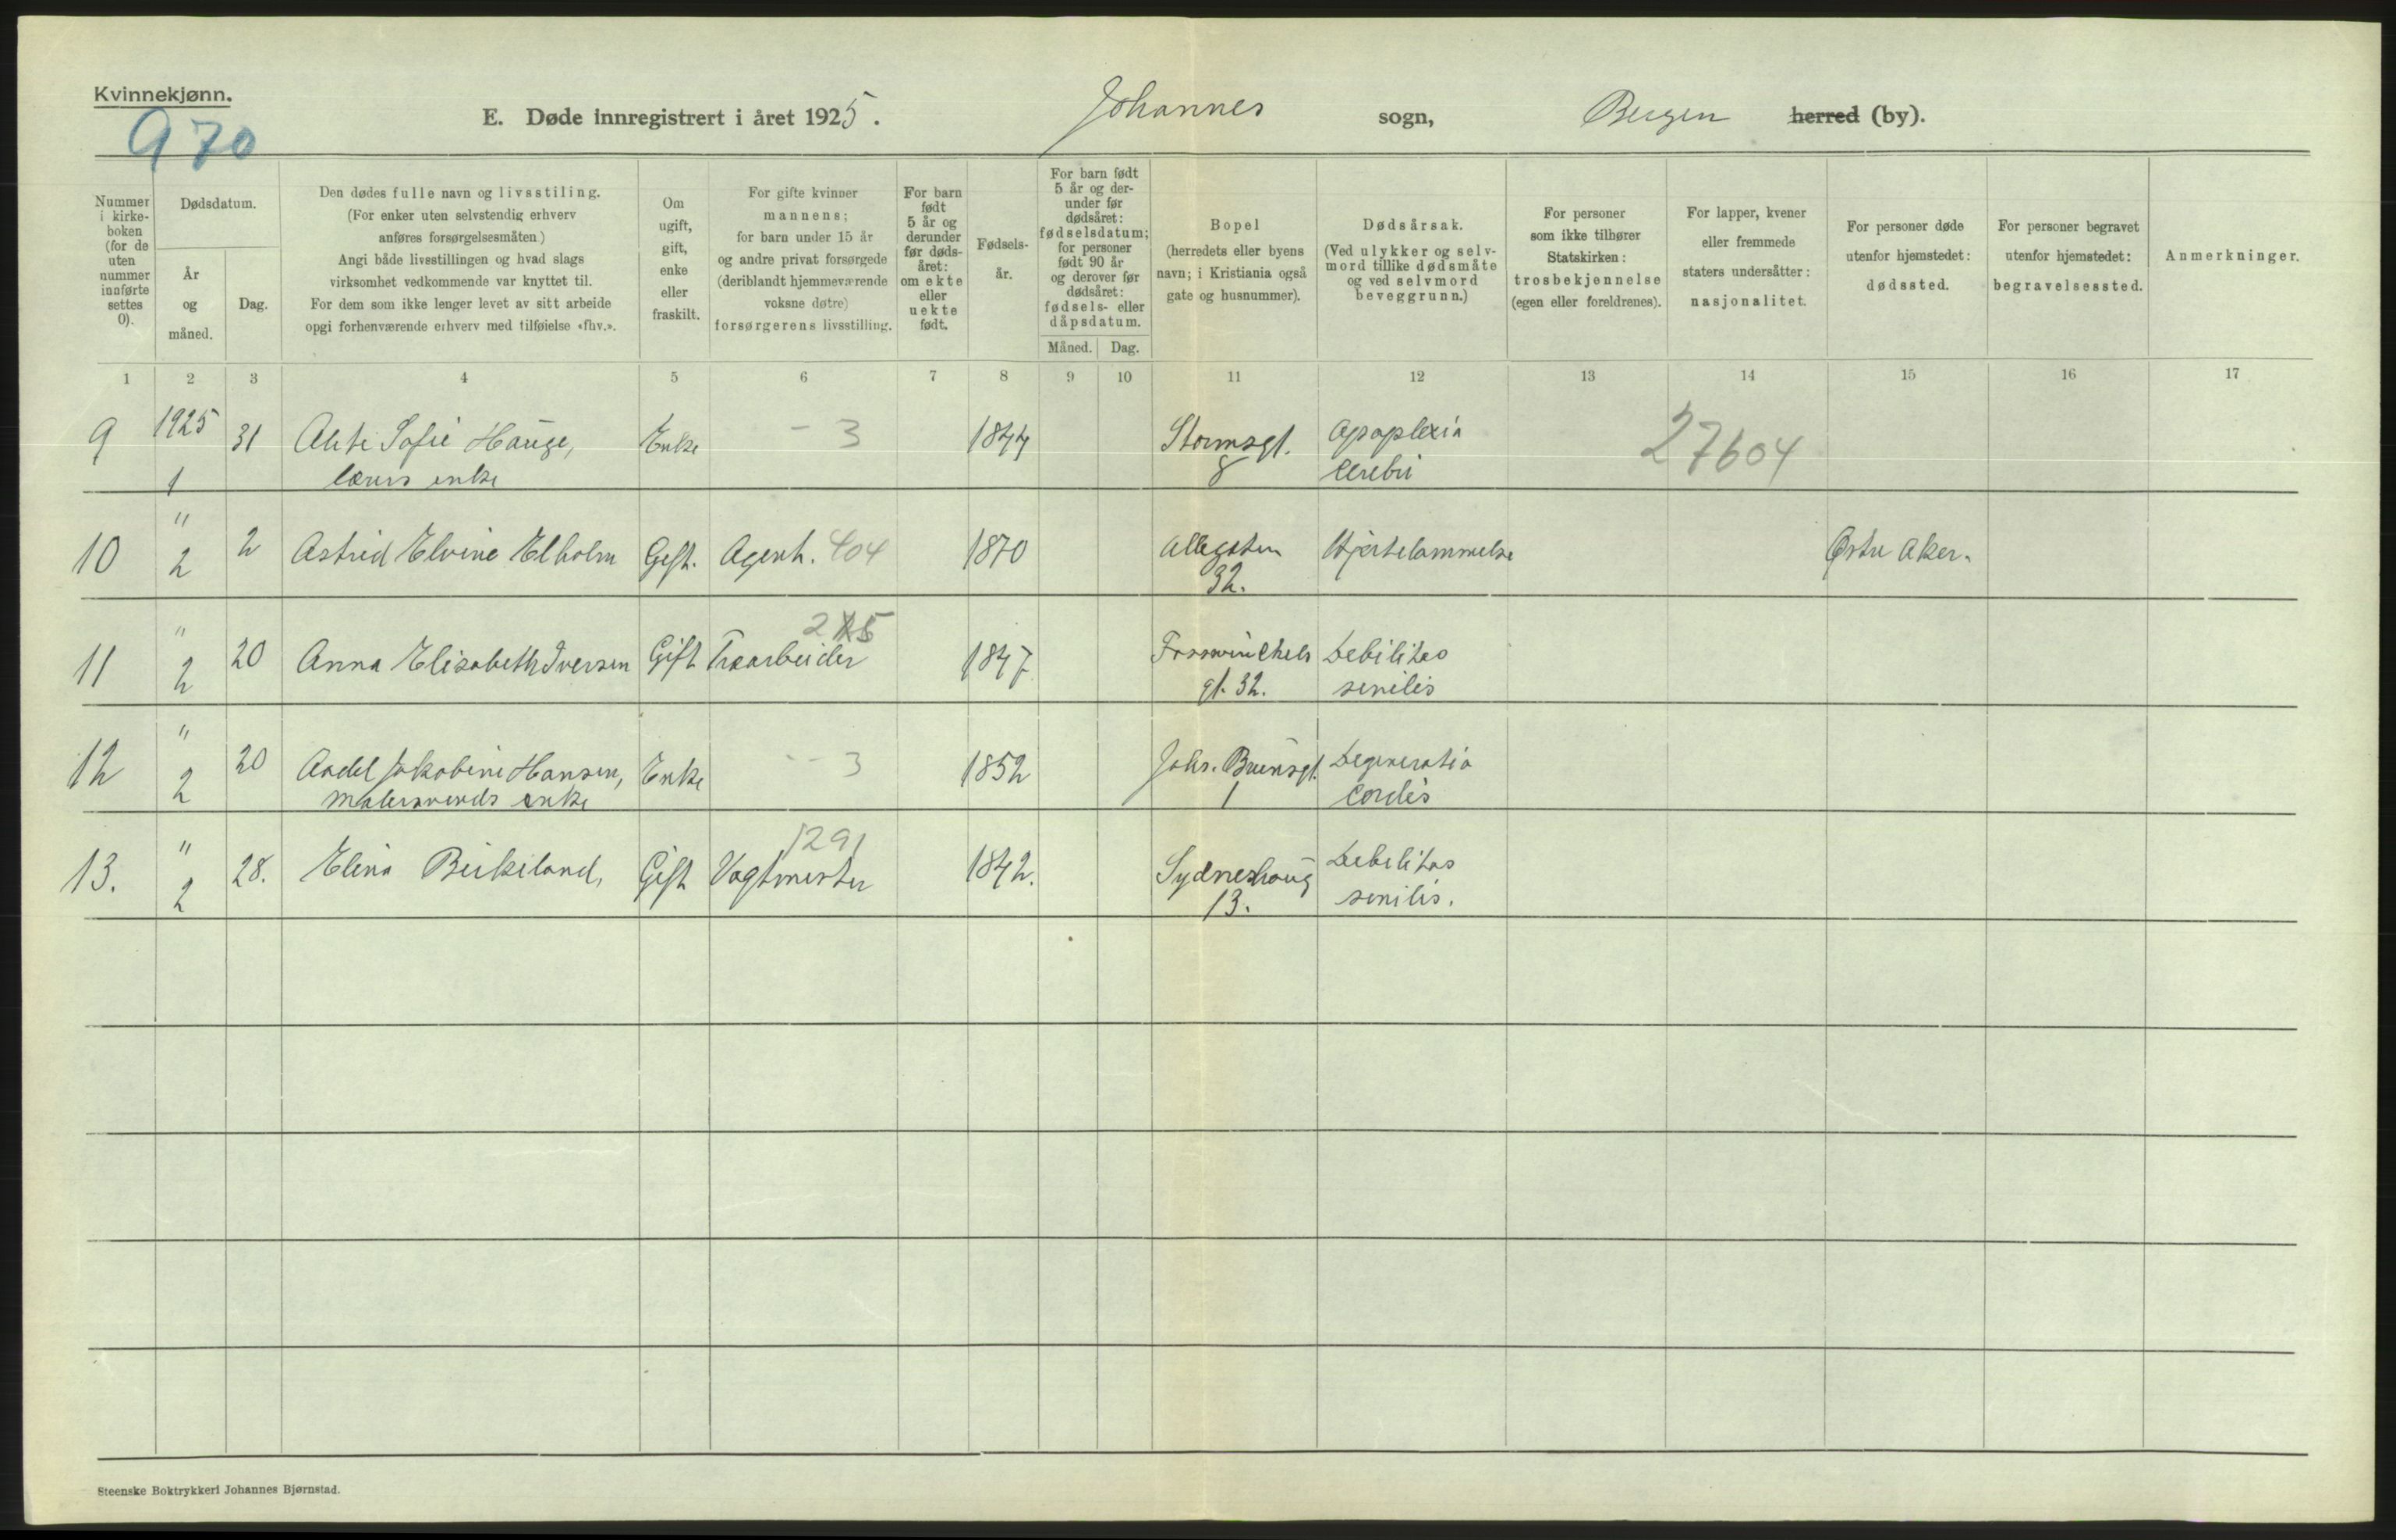 Kvinnekjønn.
970
E. Døde innregistrert i året 1925. Johannes sogn, Bergen herred (by).
Nummer i kirke-boken (for de uten nummer innførte settes 0).
Dødsdatum.
År og måned.
Dag.
Den dødes fulle navn og livsstiling.
(For enker uten selvstendig erhverv
anføres forsørgelsesmåten)
Angi både livsstillingen og hvad slags
virksomhet vedkommende var knyttet til.
For dem som ikke lenger levet av sitt arbeide
opgi forhenværende erhverv med tilføielse «fhv.».
Om
ugift,
gift,
enke
eller
fraskilt.
For gifte kvinner
mannens;
for barn under 15 år
og andre privat forsørgede
(deriblandt hjemmeværende
voksne døtre)
forsørgerens livsstilling.
For barn
født
5 år og
derunder
før døds-
året:
om ekte
eller
uekte
født.
Fødsels-
år.
For barn født
5 år og der-
under før
dødsåret:
fødselsdatum;
for personer
født 90 år
og derover før
dødsåret:
fødsels- eller
dåpsdatum.
Måned. Dag.
Bopel
(herredets eller byens
navn; i Kristiania også
gate og husnummer).
Dødsårsak.
(Ved ulykker og selv-
mord tillike dødsmåte
og ved selvmord
beveggrunn.)
For personer
som ikke tilhører
Statskirken:
trosbekjennelse
(egen eller foreldrenes).
For lapper, kvener
eller fremmede
staters undersåtter:
nasjonalitet.
For personer døde
utenfor hjemstedet:
dødssted.
For personer begravet
utenfor hjemstedet:
begravelsessted.
Anmerkninger.
1 2 3 4 5 6 7 8 9 10 11 12 13 14 15 16 17
9 1925 31 Sofie Hauge, Enke - 3 1844 Stormsgt. Apoplexia 27604
1 lærers enke 8 cerebri
10 " 2 Astrid Elvine Elholm Gift. Agent. 404 1870 Allegaten Hjertelammelse Østre Aker.
2 32.
11 " 20 Anna Elisabeth Iversen Gift Træarbeider 1847 Debilitas
2 gt. 32. senilis
12 " 20 Jakobine Hansen, Enke - 3 1852 Johs. Brunsgt. Degeneratio
2 malersvends enke 1 cordis
1291
13. " 28. Elina Birkeland, Gift Vagtmester 1842. Sydneshaug Debilitas
2 13. senilis.
Steenske Boktrykkeri Johannes Bjørnstad.